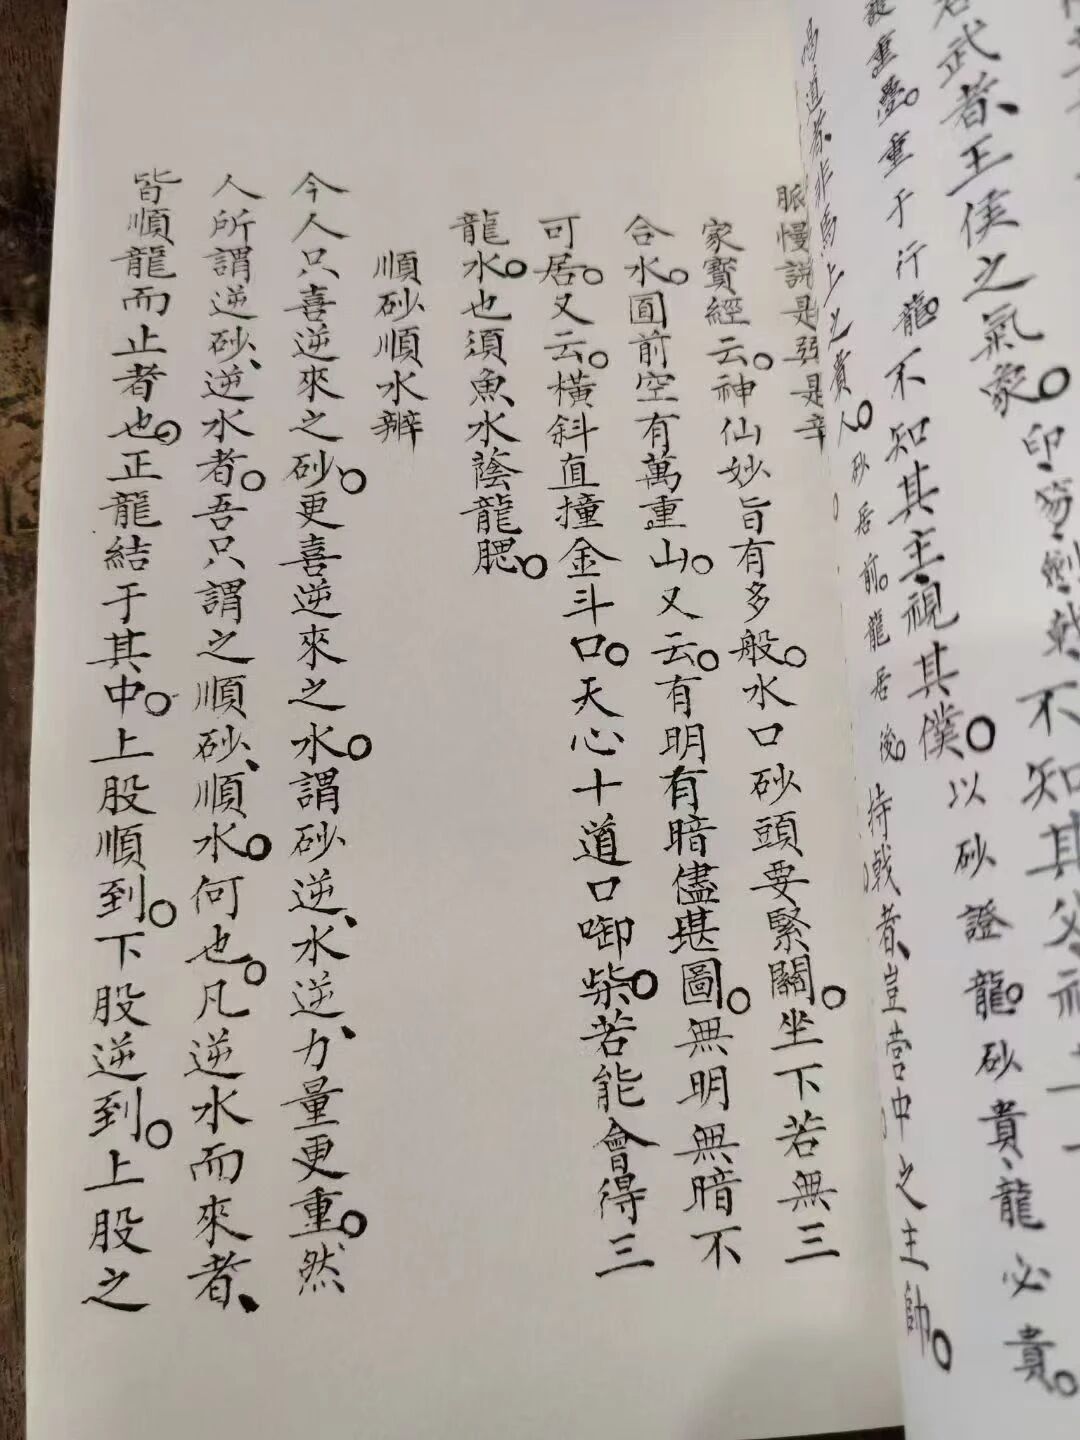 武者、王侯之氣象。印笏、劍戟、不知其父、視
重疊。重于行龍。不知其主、視其僕。以砂證龍。砂貴、龍必貴。
馬上之貴人。砂居前。龍居後。持戟者、豈營中之主帥。
脈慢說是強是辛
家寶經云。神仙妙旨有多般。水口砂頭要緊關。坐下若無三
合水。面前空有萬重山。又云。有明有暗儘堪圖。無明無暗不
可居。又云。橫斜直撞金斗口。天心十道口啣柴。若能會得三
龍水。也須魚水蔭龍腮。
順砂順水辨
今人只喜逆來之砂。更喜逆來之水。謂砂逆、水逆、力量更重。然
人所謂逆砂、逆水者。吾只謂之順砂、順水。何也。凡逆水而來者、
皆順龍而止者也。正龍結于其中。上股順到。下股逆到。上股之